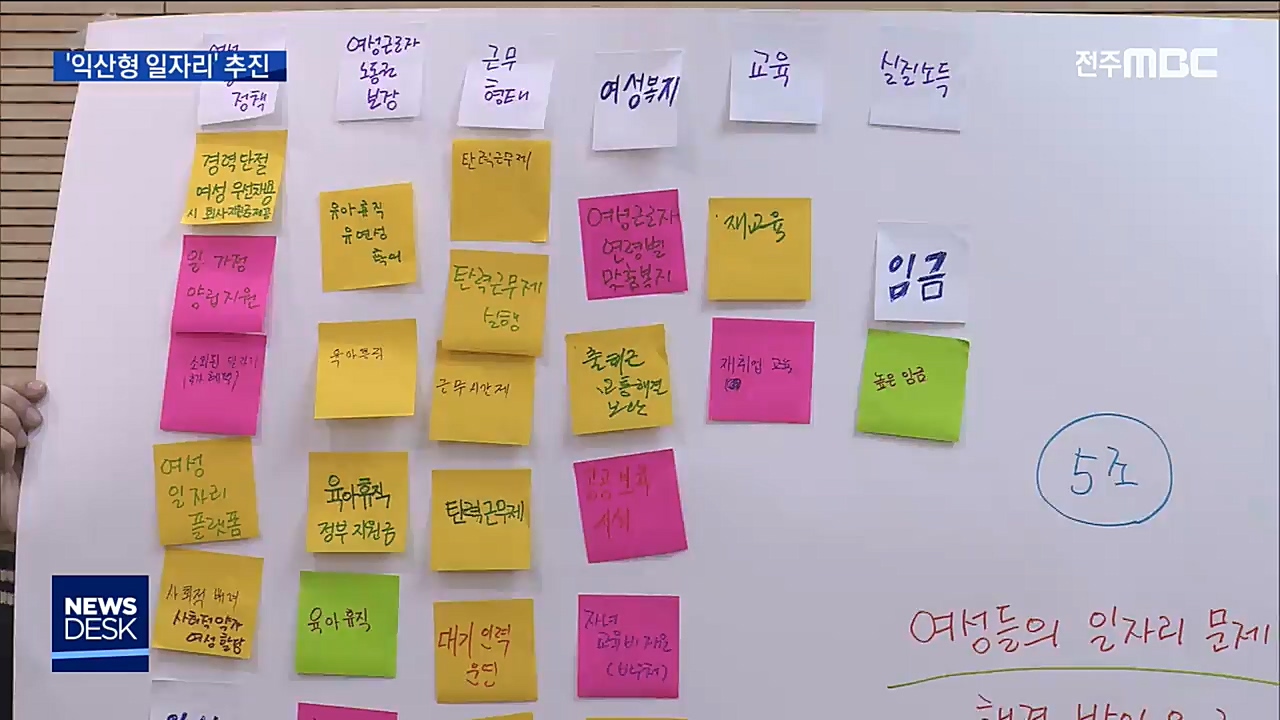 '익산형 일자리' 추진
전주MBC
정책
여성근로자
노동권
보장
근무
형태
여성복지
교육
실질소득
경력단절
여성 우선채용
시 회사지원금제공
일 가정
양립지원
여성
일자리
플랫폼
사회적 배려
사회적약자
여성할당
육아휴직
유연성
육아휴직
육아휴직
정부지원금
육아휴직
탄력근무제
탄력근무제
실행
근무시간제
탄력근무제
대기인력
운영
여성근로자
연령별
맞춤복지
출퇴근
교통해결
보안
공공보육
시설
자녀
교육비지원
재교육
재취업 교육
임금
높은 임금
5조
여성들의 일자리 문제
NEWS
DESK